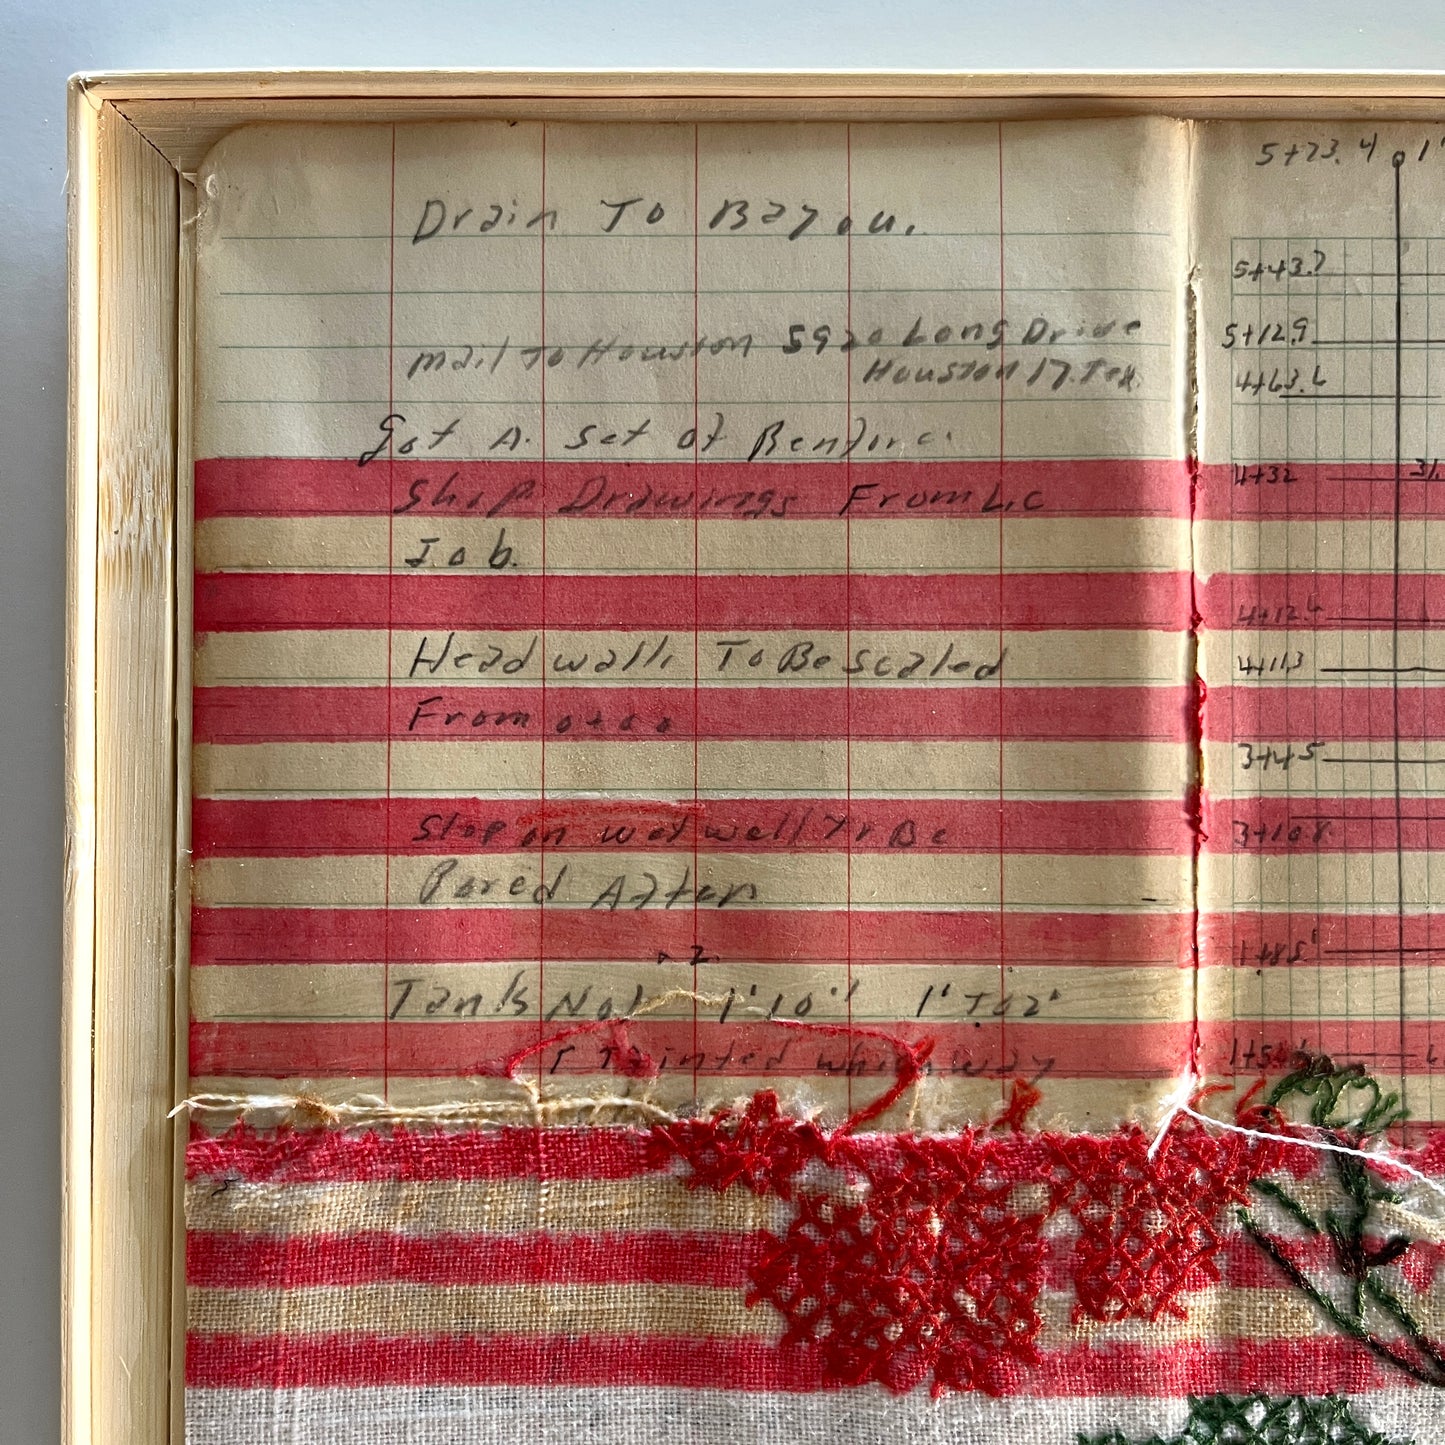 Drain To Bayou.
Mail To Houston 5920 Long Drive
Houston 17. Tex.
Got A. Set of
Shop Drawings From L.C
Job.
Head walls To Be scaled
From 0+00
Slop on wet well To Be
Pored After
Tank Not 1'10" 1' To 2'
which way
5+73.4
5+43.7
5+12.9
4+63.6
4+32 31.
4+12.6
4+11.3
3+45
3+10.8
1+85'